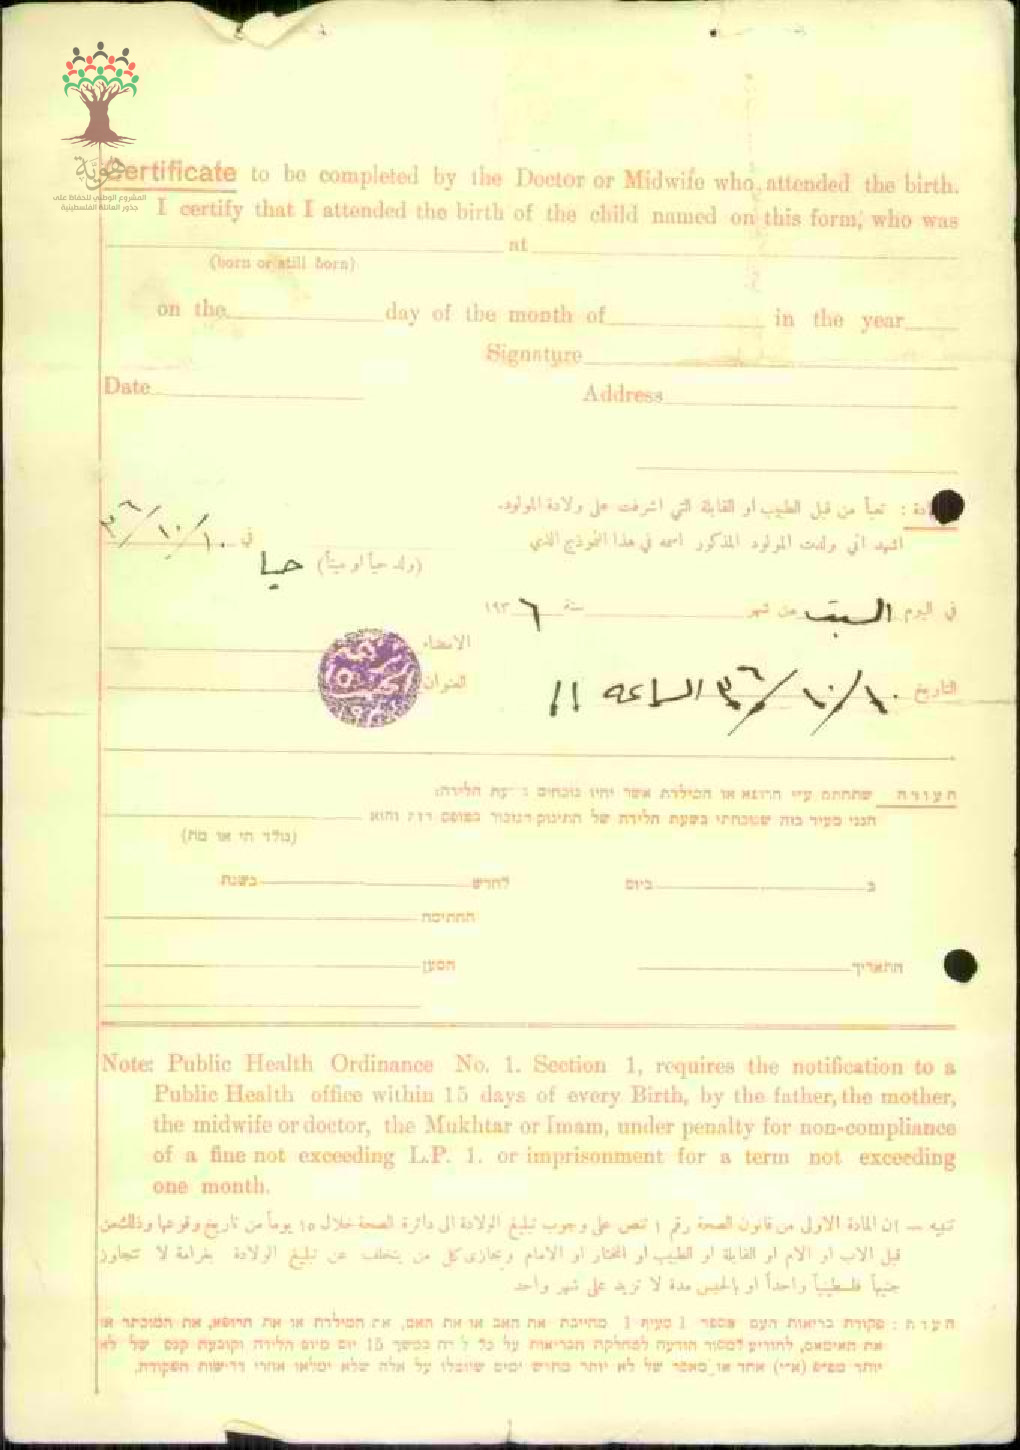 هُويَّة
المشروع الوطني للحفاظ على
جذور العائلة الفلسطينية
Certificate to be completed by the Doctor or Midwife who attended the birth.
I certify that I attended the birth of the child named on this form, who was
at
(born or still born)
on the day of the month of in the year
Signature
Date Address
: تعبأ من قبل الطبيب او القابلة التي اشرفت على ولادة المولود.
اشهد اني ولدت المولود المذكور اسمه في هذا النموذج الذي
(ولد حياً او ميتاً) حيا في ١٠/١٠/٣٦
في اليوم السبت من شهر سنة ١٩٣٦
الامضاء
التاريخ ١٠/١٠/٣٦ الساعه ١١ العنوان
תעודה שתחתם ע״י הרופא או המילדת אשר יהיו נוכחים בשעת הלידה:
הנני מעיד בזה שנוכחתי בשעת הלידה של התינוק הנזכר בטופס הזה והוא
(נולד חי או מת)
ב ביום לחדש בשנת
החתימה
התאריך המען
Note: Public Health Ordinance No. 1. Section 1, requires the notification to a
Public Health office within 15 days of every Birth, by the father, the mother,
the midwife or doctor, the Mukhtar or Imam, under penalty for non-compliance
of a fine not exceeding L.P. 1. or imprisonment for a term not exceeding
one month.
تنبيه — ان المادة الاولى من قانون الصحة رقم ١ تنص على وجوب تبليغ الولادة الى دائرة الصحة خلال ١٥ يوماً من تاريخ وقوعها وذلك من
قبل الاب او الام او القابلة او الطبيب او المختار او الامام ويجازى كل من يتخلف عن تبليغ الولادة بغرامة لا تتجاوز
جنيهاً فلسطينياً واحداً او بالحبس مدة لا تزيد على شهر واحد
הערה : פקודת בריאות העם מספר 1 סעיף 1 מחייבת את האב או את האם, את המילדת או את הרופא, את המוכתר או
את האימאם, להודיע למחלקת הבריאות על כל לידה במשך 15 יום מיום הלידה וקובעת קנס של לא
יותר מפ״ם (א״י) אחד או מאסר של לא יותר מחדש ימים שיוטלו על אלה שלא ימלאו אחרי דרישות הפקודה.